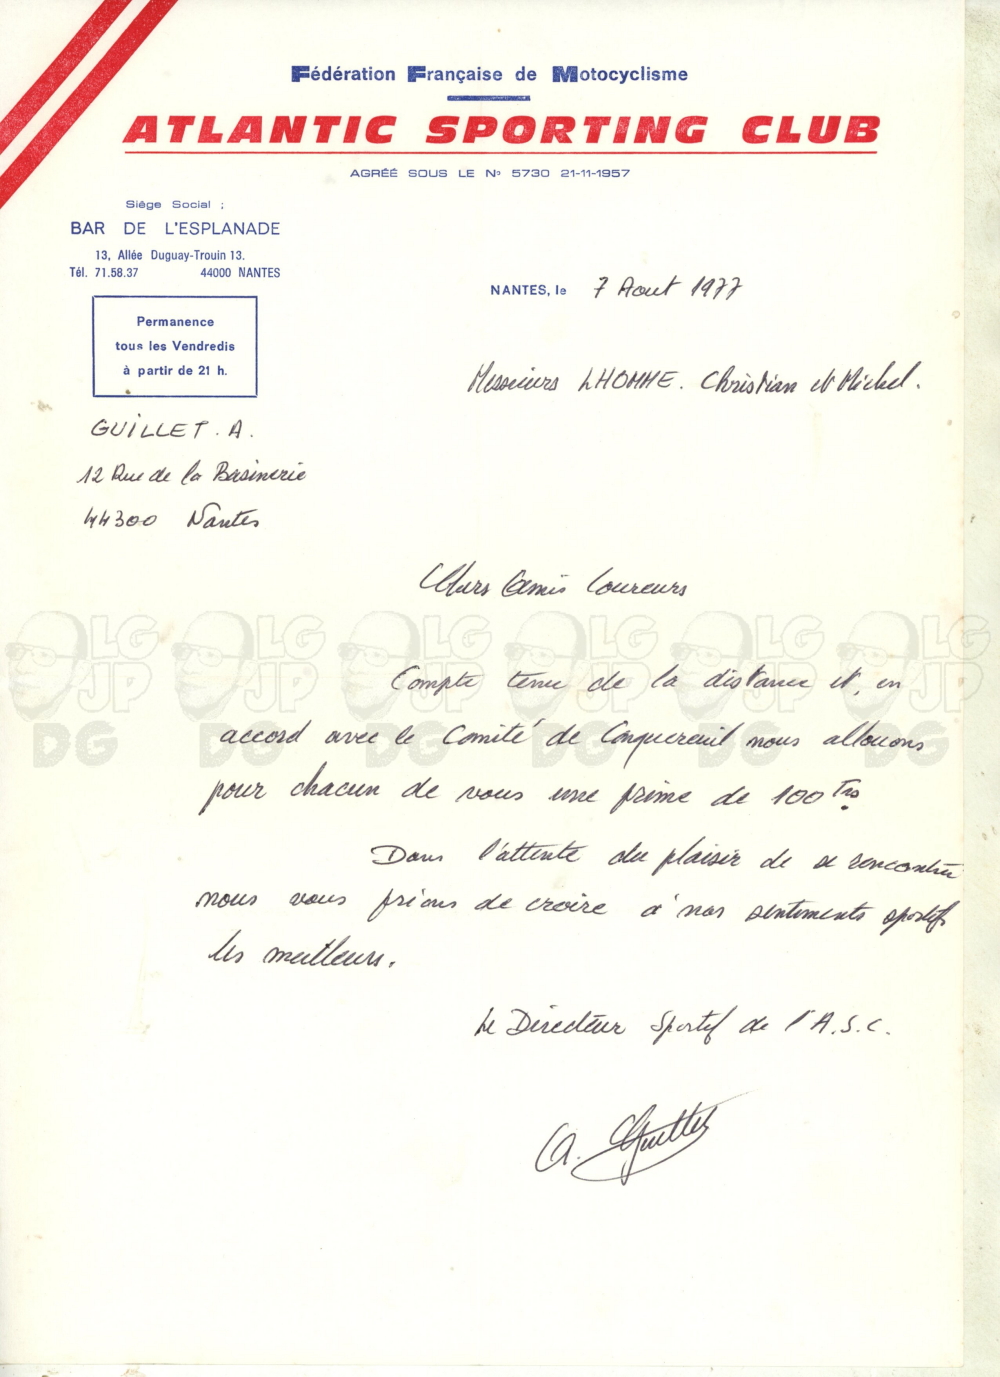 Fédération Française de Motocyclisme
ATLANTIC SPORTING CLUB
AGRÉÉ SOUS LE No 5730 21-11-1957
Siège Social ;
BAR DE L'ESPLANADE
13, Allée Duguay-Trouin 13.
Tél. 71.58.37 44000 NANTES
NANTES, le 7 Aout 1977
Permanence
tous les Vendredis
à partir de 21 h.
Messieurs LHOMME. Christian et Michel.
GUILLET. A.
12 Rue de la Basinerie
44300 Nantes
Chers Amis Coureurs
Compte tenu de la distance et, en
accord avec le Comité de Conquereuil nous allouons
pour chacun de vous une prime de 100 Frs
Dans l'attente du plaisir de se rencontrer
nous vous prions de croire à nos sentiments sportifs
les meilleurs.
Le Directeur Sportif de l'A.S.C.
A. Guillet
LG JP DG LG JP DG LG JP DG LG JP DG LG JP DG LG JP DG